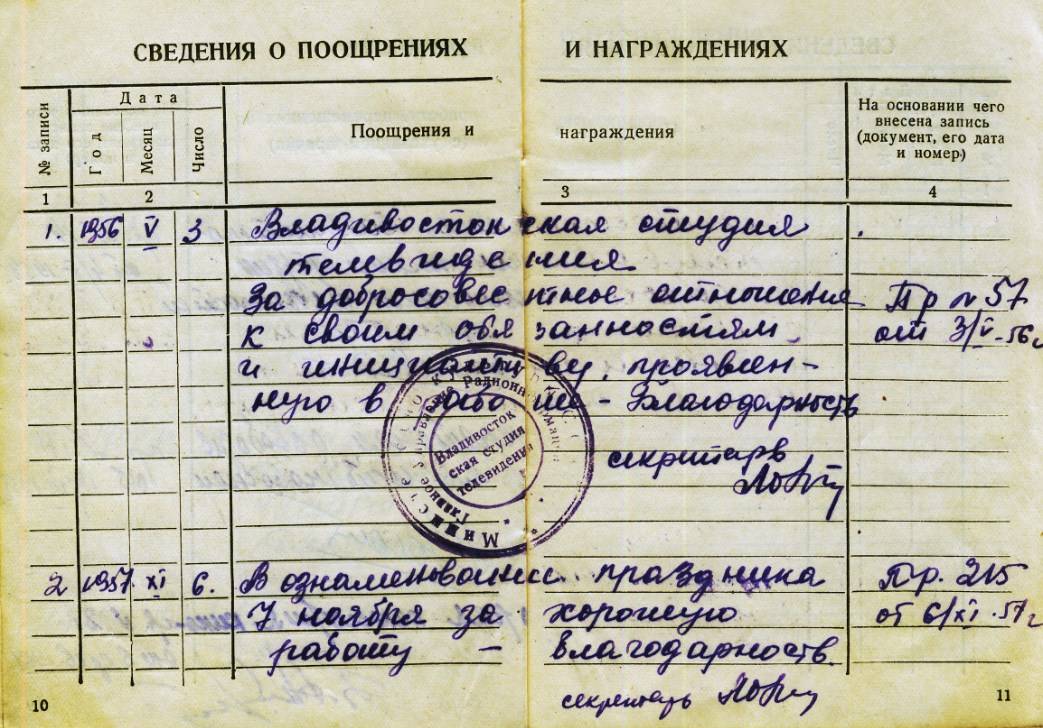 СВЕДЕНИЯ О ПООЩРЕНИЯХ И НАГРАЖДЕНИЯХ
№ записи
Дата
Год
Месяц
Число
Поощрения и награждения
На основании чего
внесена запись
(документ, его дата
и номер)
1 2 3 4
1. 1956 V 3 Владивостокская студия
телевидения
За добросовестное отношение Пр № 57
к своим обязанностям от 3/V-56г
и инициативу, проявлен-
ную в работе - Благодарность
секретарь
Министерство культуры
Главное управление Радиоинформации
Владивосток
ская студия
телевидения
2 1957 XI 6. В ознаменование праздника Пр. 215
7 ноября за хорошую от 6/XI.57г
работу - благодарность.
секретарь
10
11